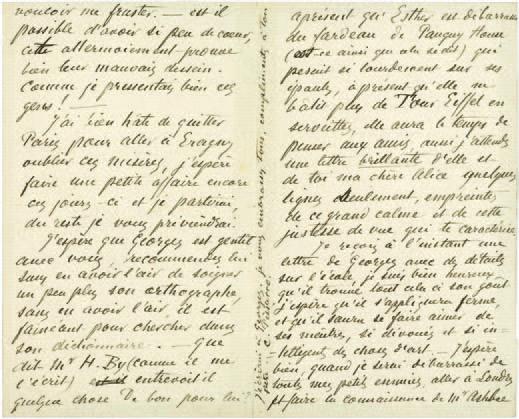 vouloir me fruster. est il
possible d'avoir si peu de cœur,
cette attermoiement prouve
bien leur mauvais dessein.
Comme je pressentais bien ces
gens! —
J'ai bien hâte de quitter
Paris pour aller à Eragny
oublier ces misères, j'espère
faire une petite affaire encore
ces jours-ci et je partirai,
du reste je vous préviendrai.
J'espère que Georges est gentil
avec vous, recommandez lui
sans en avoir l'air de soigner
un peu plus son orthographe,
sans en avoir l'air, il est
fainéant pour chercher dans
son dictionnaire. — Que
dit Mr H. By (comme il me
l'écrit) entrevoit il
quelque chose de bon pour lui?
je vous embrasse tous, compliments à tous
àprésent qu'Esther est débarrassée
du fardeau de Tanguy House
(est-ce ainsi que cela se dit) qui
pesait si lourdement sur ses
épaules, àprésent qu'elle ne
bâtit plus de Tour Eiffel en
serviettes, elle aura le temps de
penser aux amis, aussi j'attends
une lettre brillante d'elle et
de toi ma chère Alice quelques
lignes seulement, empreintes
de ce grand calme et de cette
justesse de vue qui te caractérise.
Je reçois à l'instant une
lettre de Georges avec des détails
sur l'école, je suis bien heureux
qu'il trouve tout cela à son goût
j'espère qu'il s'appliquera ferme,
et qu'il saura se faire aimer de
ses maîtres, si dévoués et si in-
telligents des choses d'art. — J'espère
bien, quand je serai débarrassé de
toutes mes petits ennuis, aller à Londres
et faire la connaissance de Mr Ashbee